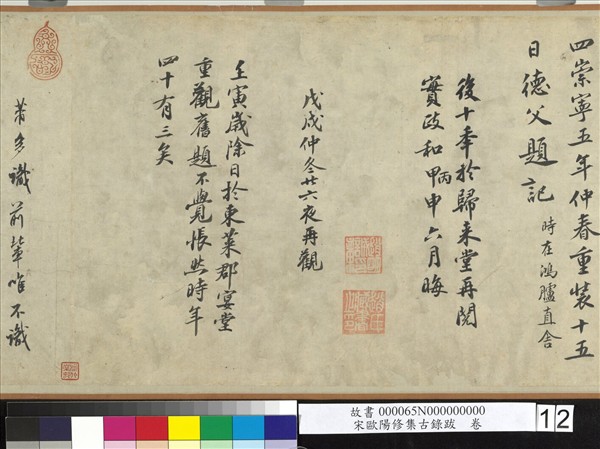 四崇寧五年仲春重裝十五
日德父題記 時在鴻臚直舍
後十年於歸来堂再閱
實政和甲丙申六月晦
戊戌仲冬廿六夜再觀
壬寅歲除日於東萊郡宴堂
重觀舊題不覺悵然時年
四十有三矣
黃多識前輩唯不識
故書 000065N000000000
宋歐陽修集古錄跋 卷
12